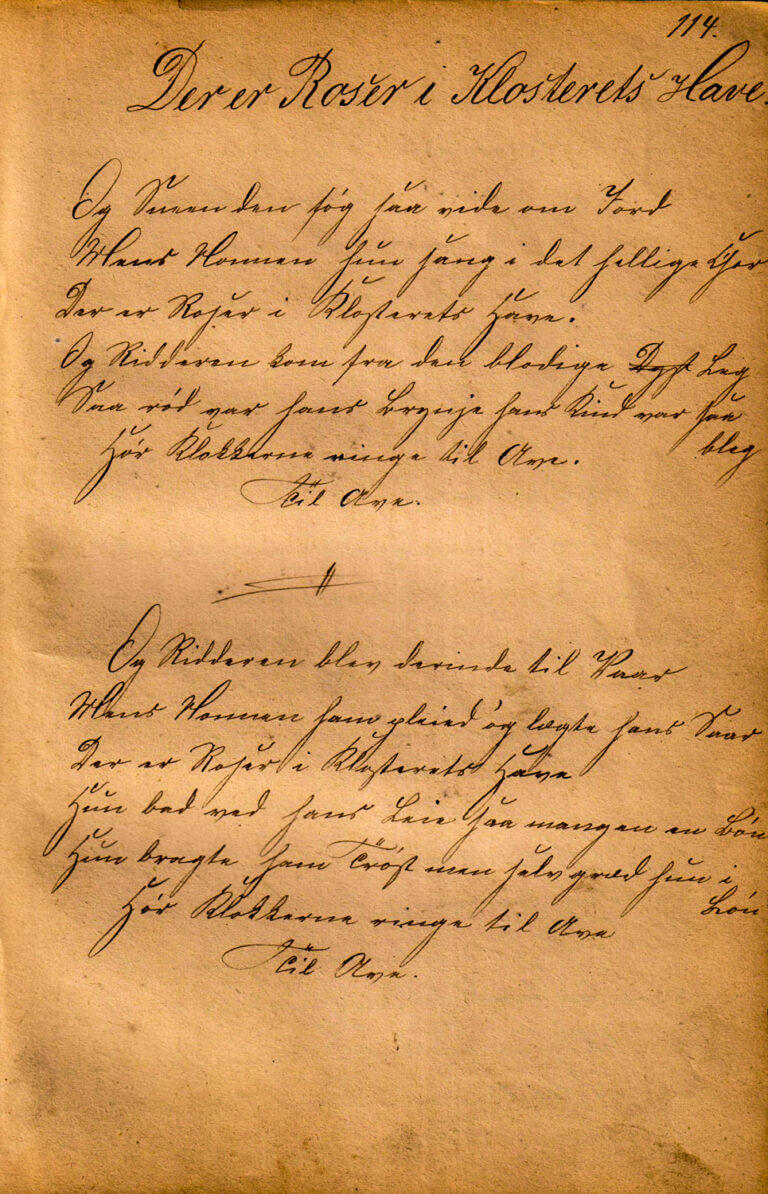 114.
Der er Roser i Klosterets Have.
Og Sneen den føg saa vide om Jord
Mens Nonnen hun sang i det hellige Chor
Der er Roser i Klosterets Have.
Og Ridderen kom fra den blodige Dyst Leg
Saa rød var hans Brynje hans Kind var saa
bleg
Hør Klokkerne ringe til Ave.
Til Ave.
Og Ridderen blev derinde til Vaar
Mens Nonnen ham pleied' og lægte hans Saar
Der er Roser i Klosterets Have
Hun bad ved hans Leie saa mangen en Bøn
Hun bragte ham Trøst men selv græd hun i
Løn
Hør Klokkerne ringe til Ave
Til Ave.